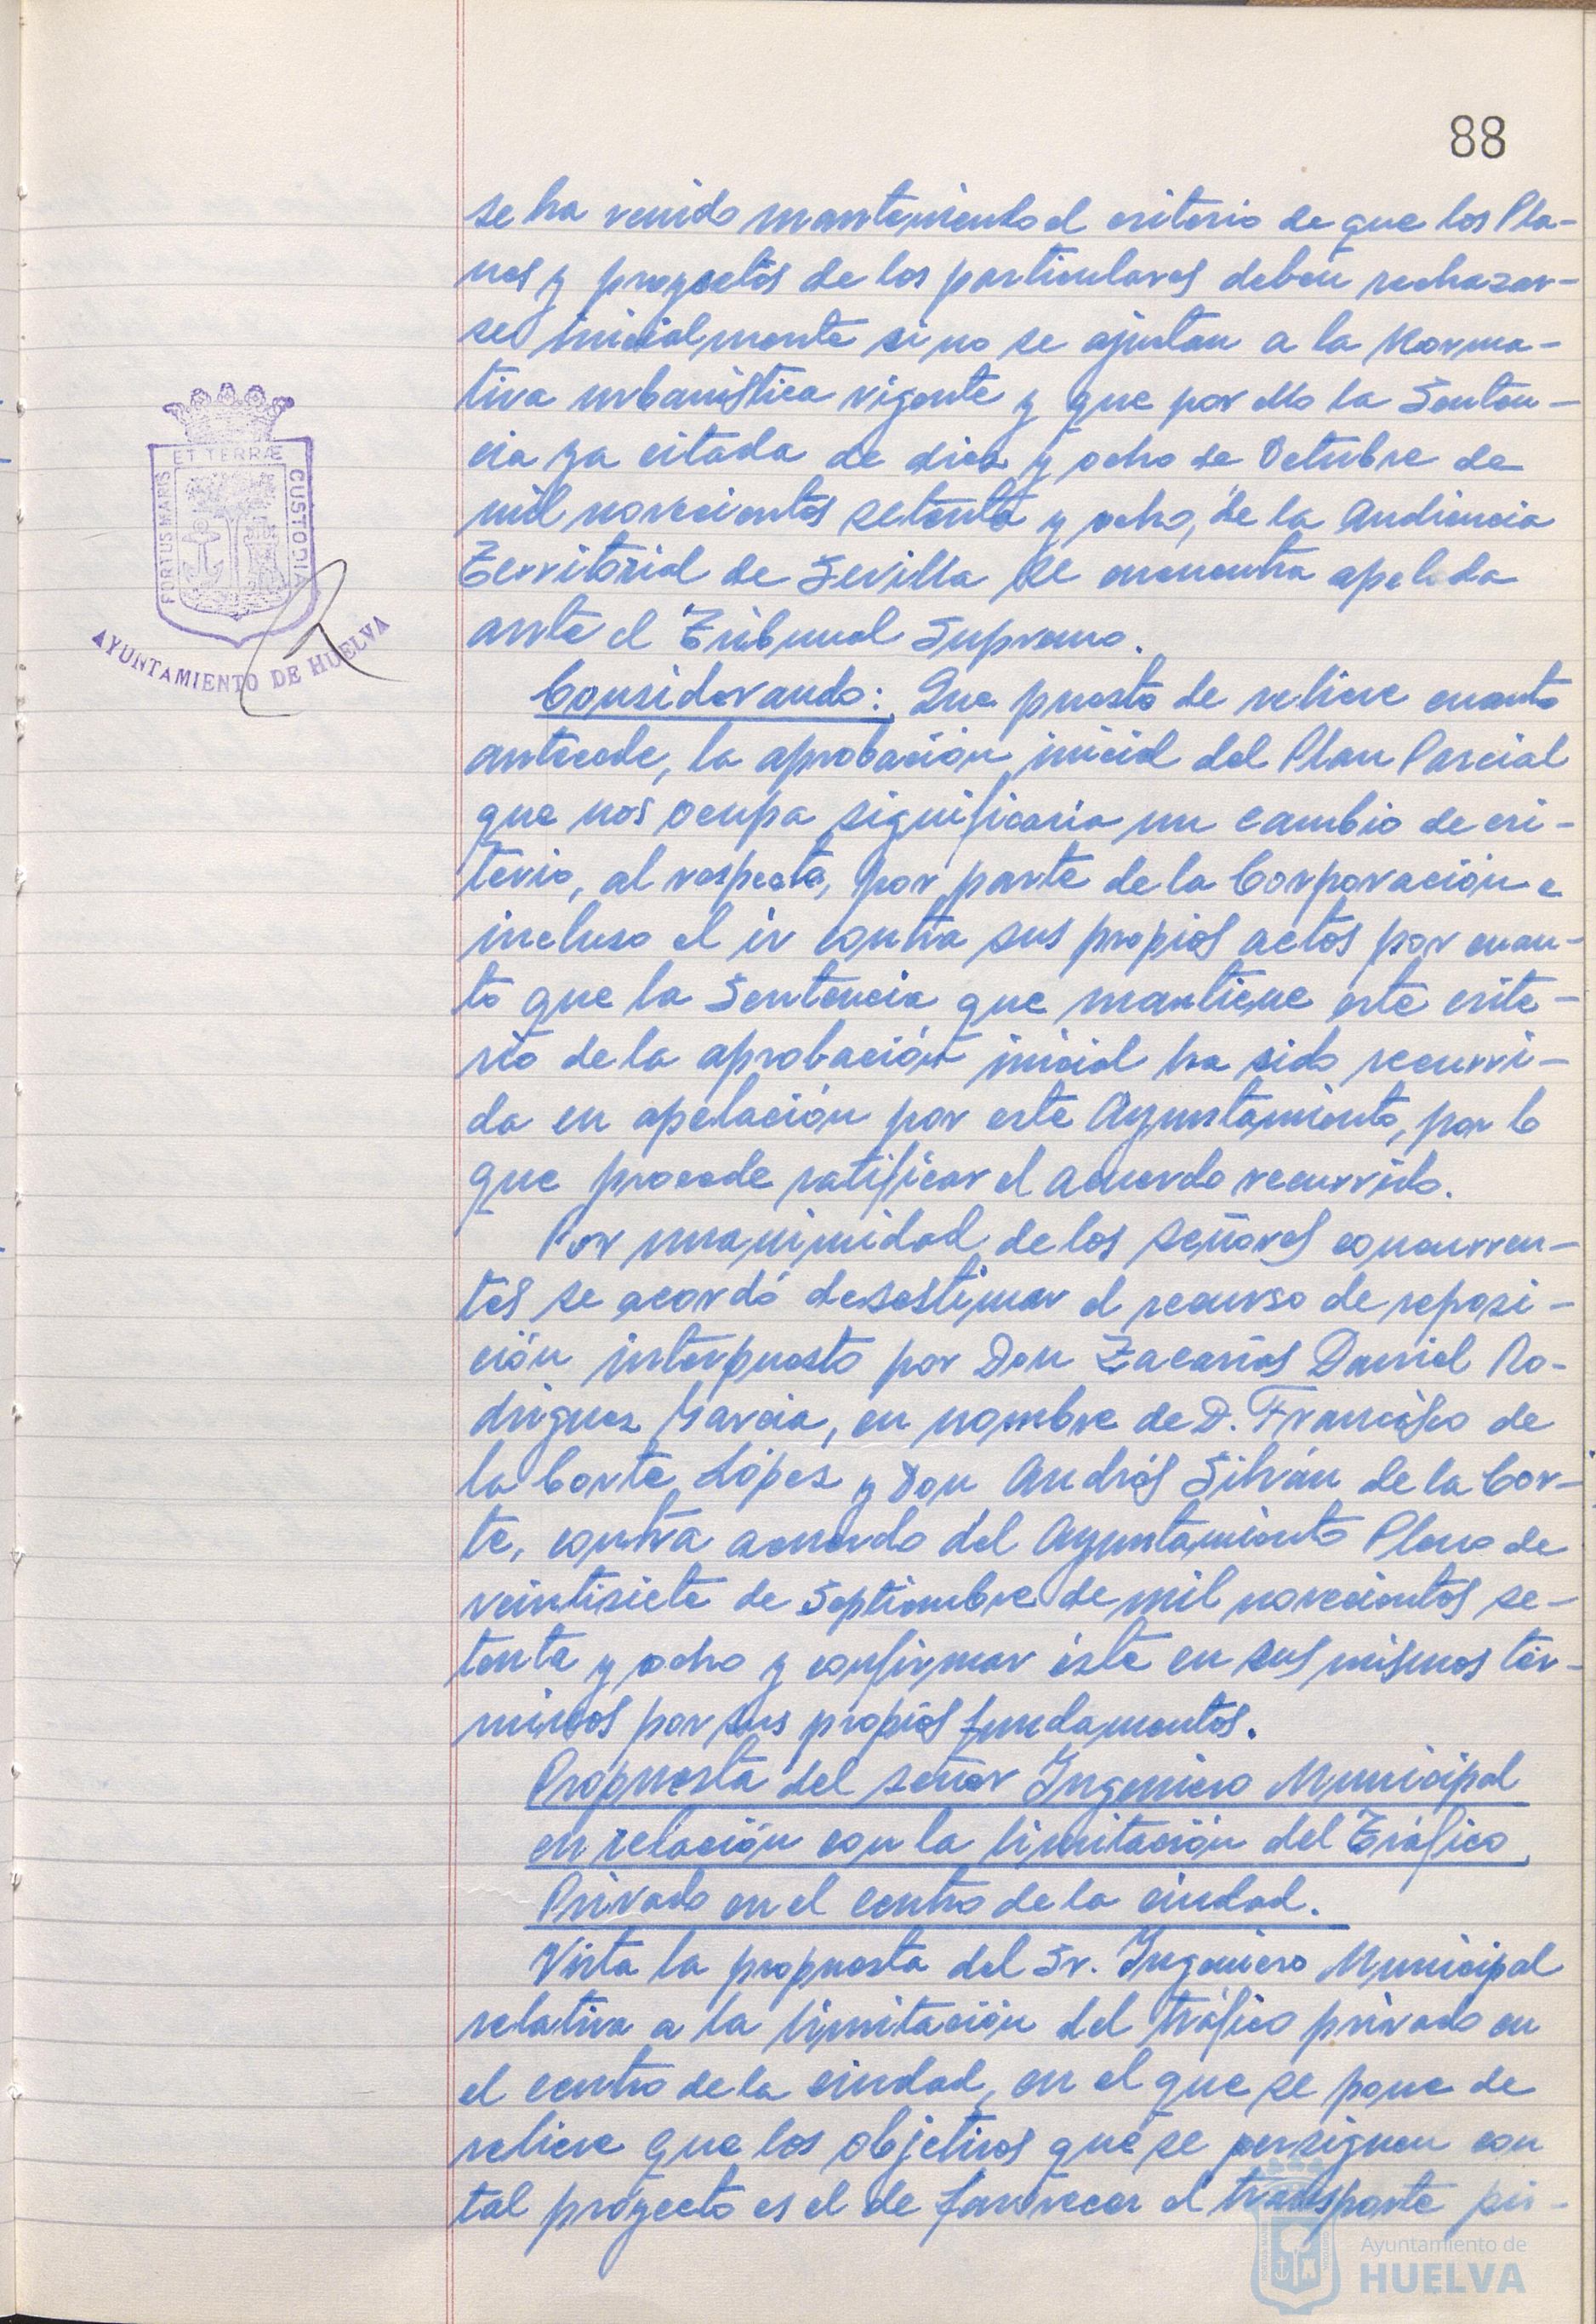 88
se ha venido manteniendo el criterio de que los Pla-
nes y proyectos de los particulares deben rechazar-
se inicialmente si no se ajustan a la Norma-
tiva urbanística vigente y que por ello la Senten-
cia ya citada de diez y ocho de Octubre de
mil novecientos setenta y ocho, de la Audiencia
Territorial de Sevilla se encuentra apelada
ante el Tribunal Supremo.
Considerando: Que puesto de relieve cuanto
antecede, la aprobación inicial del Plan Parcial
que nos ocupa significaria un cambio de cri-
terio, al respecto, por parte de la Corporación e
incluso el ir contra sus propios actos por cuan-
to que la Sentencia que mantiene este crite-
rio de la aprobación inicial ha sido recurri-
da en apelación por este Ayuntamiento, por lo
que procede ratificar el acuerdo recurrido.
Por unanimidad de los señores concurren-
tes se acordó desestimar el recurso de reposi-
ción interpuesto por Don Zacarías Daniel Ro-
driguez Garcia, en nombre de D. Francisco de
la Corte López y Don Andrés Silván de la Cor-
te, contra acuerdo del Ayuntamiento Pleno de
veintisiete de Septiembre de mil novecientos se-
tenta y ocho y confirmar éste en sus mismos tér-
minos por sus propios fundamentos.
Propuesta del señor Ingeniero Municipal
en relación con la limitación del Tráfico
Privado en el centro de la ciudad.
Vista la propuesta del Sr. Ingeniero Municipal
relativa a la limitación del tráfico privado en
el centro de la ciudad, en el que se pone de
relieve que los objetivos que se persiguen con
tal proyecto es el de favorecer el transporte pú-
PORTUS MARIS
ET TERRÆ
CUSTODIA
AYUNTAMIENTO DE HUELVA
Ayuntamiento de
HUELVA